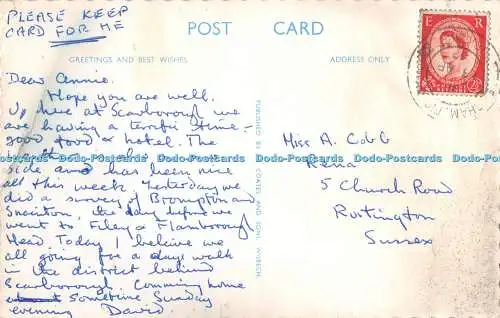 PLEASE KEEP
CARD FOR ME
POST CARD
GREETINGS AND BEST WISHES
ADDRESS ONLY
E R
Dear Annie.
Hope you are well.
Up here at Scarborough we
are having a terrific time -
good food & hotel. The
side and has been nice
all this week. Yesterday we
did a survey of Brompton and
Snainton, the day before we
went to Filey & Flamborough
Head Today I believe we
all going for a days walk
in the district behind
Scarborough. Comming home
sometime Sunday
evening David.
PUBLISHED BY COATES AND SONS, WISBECH.
Miss A. Cobb
Rena
5 Church Road
Rustington
Sussex
Dodo-Postcards Dodo-Postcards Dodo-Postcards Dodo-Postcards Dodo-Postcards